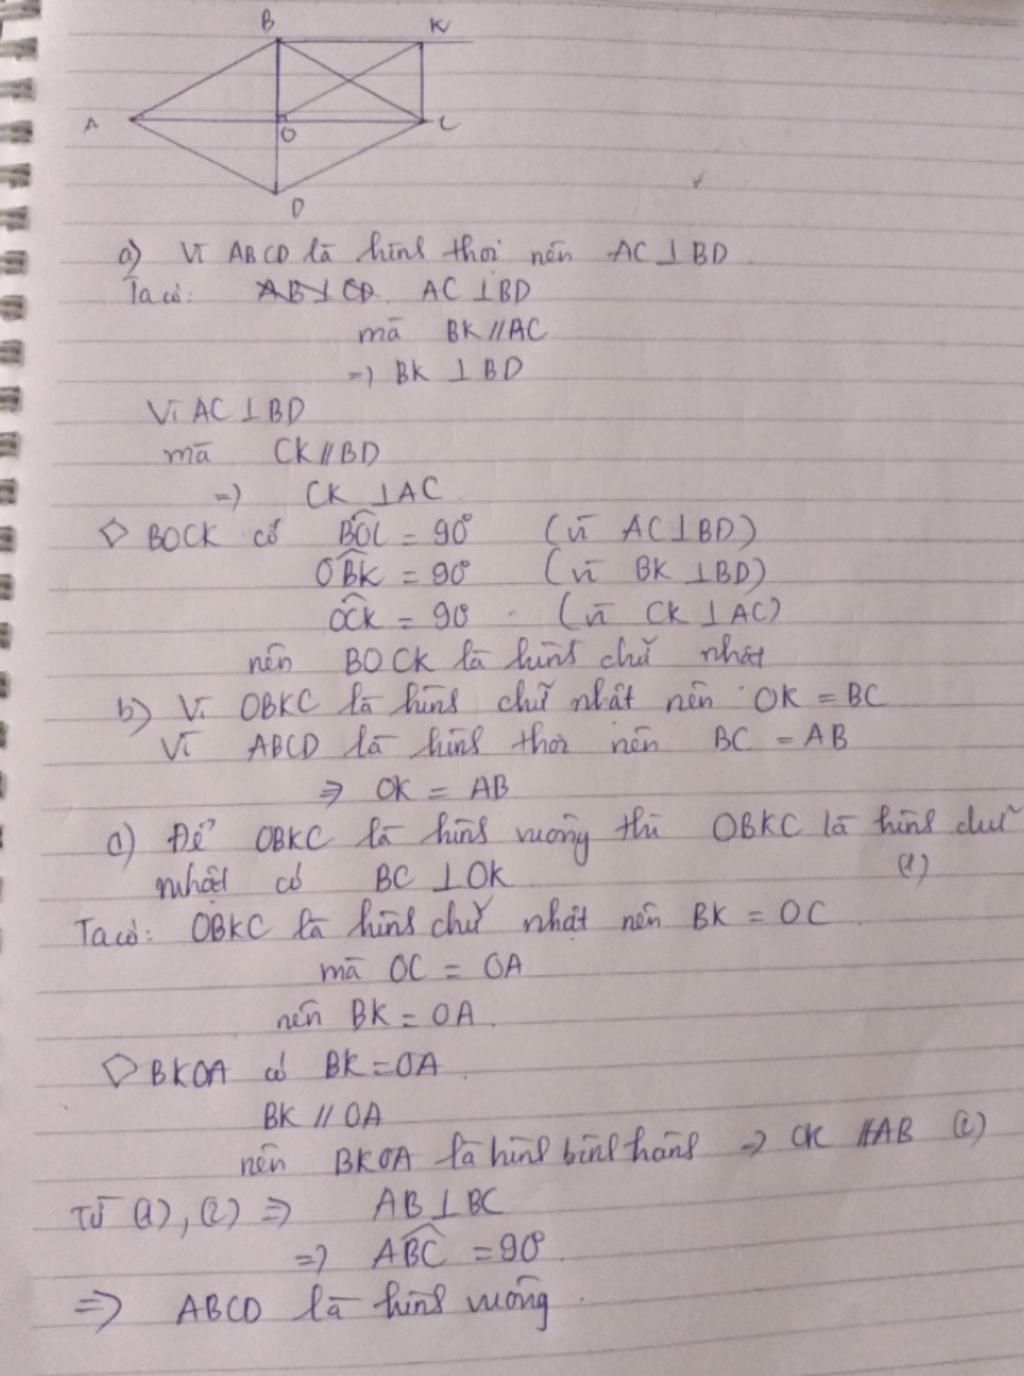 B K
A O C
D
a) Vì ABCD là hình thoi nên AC ⊥ BD
Ta có: AB ⊥ CD. AC ⊥ BD
mà BK // AC
=> BK ⊥ BD
Vì AC ⊥ BD
mà CK // BD
=> CK ⊥ AC
◇ BOCK có BOC = 90° (vì AC ⊥ BD)
OBK = 90° (vì BK ⊥ BD)
OCK = 90 (vì CK ⊥ AC)
nên BOCK là hình chữ nhật
b) Vì OBKC là hình chữ nhật nên OK = BC
Vì ABCD là hình thoi nên BC = AB
=> OK = AB
c) Để OBKC là hình vuông thì OBKC là hình chữ
nhật có BC ⊥ OK (1)
Ta có: OBKC là hình chữ nhật nên BK = OC
mà OC = OA
nên BK = OA.
◇ BKOA có BK = OA.
BK // OA
nên BKOA là hình bình hành => OK // AB (2)
Từ (1), (2) => AB ⊥ BC
=> ABC = 90°.
=> ABCD là hình vuông.